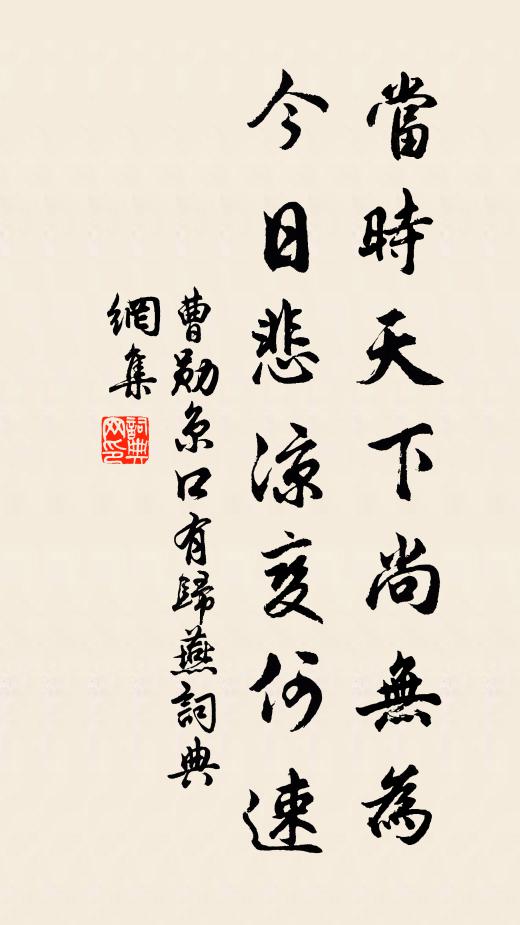 當時天下尚無為
今日悲涼变何速
曹勛京口有歸燕詞典
網集
詞典
网印